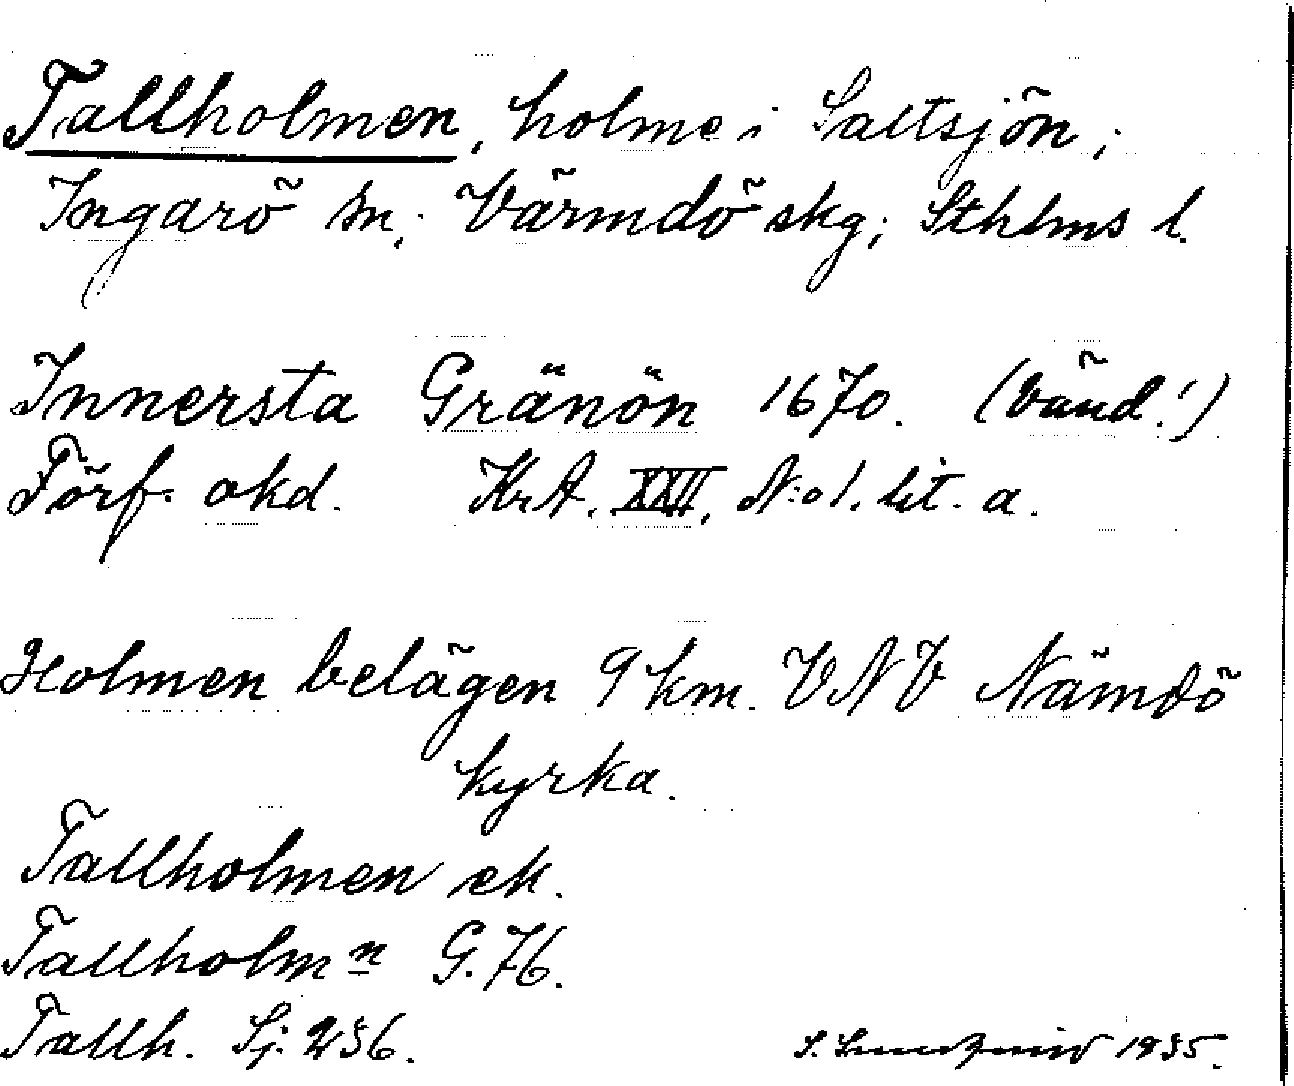 Tallholmen, holme i Saltsjön;
Ingarö sn; Värmdö skg; Sthlms l.
Innersta Gränön 1670. (vänd!)
Förf. okd. KrA. XXII, N:o 1. lit. a.
Holmen belägen 9 km. VNV Nämdö
kyrka.
Tallholmen ek.
Tallholmn G. 76.
Tallh. Sj. 236.
S. 1935.